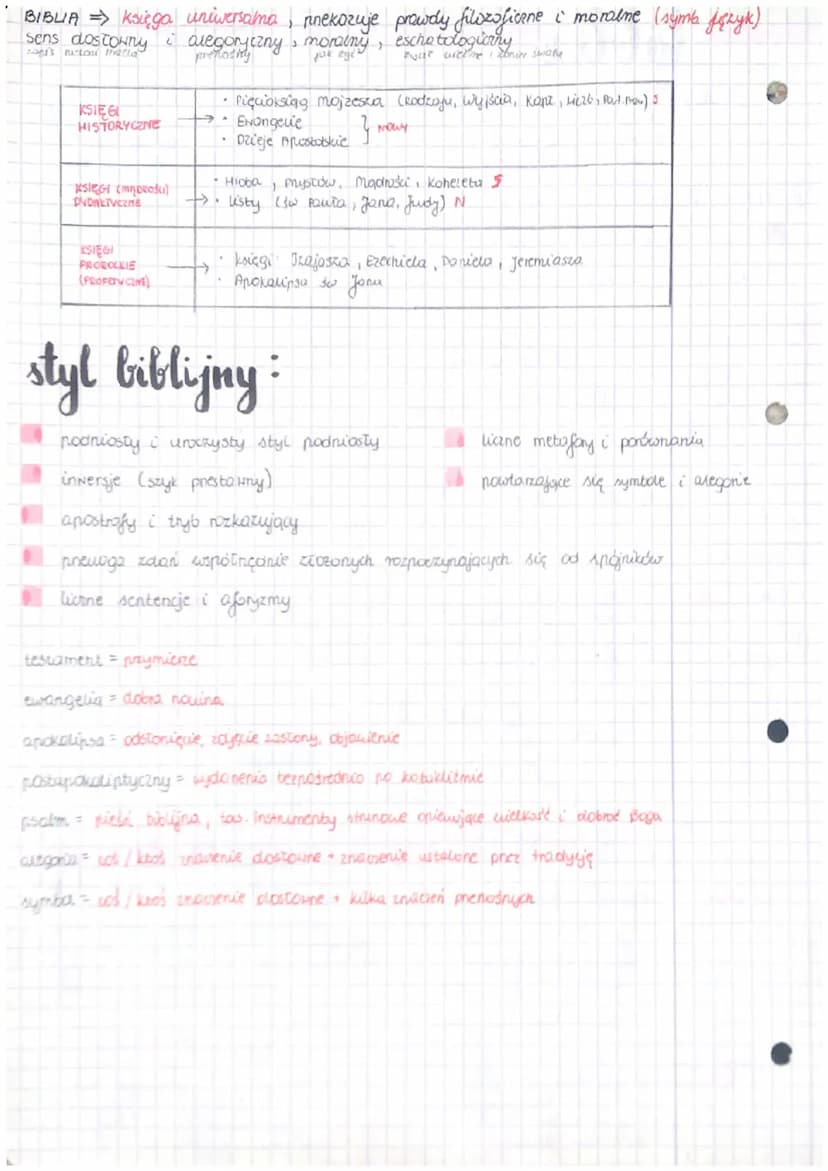 BIBLIA ⇒ księga uniwersalna, przekazuje prawdy filozoficzne i moralne (symb. język)
sens dosłowny i alegoryczny, moralny, eschatologiczny
przenośny jak żyć życie wieczne i koniec świata
KSIĘGI HISTORYCZNE → • Pięcioksiąg Mojżesza (Rodzaju, Wyjścia, Kapł, Liczb, Pwt. Praw) S
• Ewangelie
• Dzieje Apostolskie } NOWY
KSIĘGI (mądrości) DYDAKTYCZNE → • Hioba, mędrców, Mądrości, Koheleta S
• Listy (św Pawła, Jana, Judy) N
KSIĘGI PROROCKIE (PROFETYCZNE) → • księgi Izajasza, Ezechiela, Daniela, Jeremiasza
• Apokalipsa św Jana
styl biblijny:
podniosły i uroczysty styl podniosły
liczne metafory i porównania
inwersje (szyk przestawny)
powtarzające się symbole i alegorie
apostrofy i tryb rozkazujący
przewaga zdań współrzędnie złożonych rozpoczynających się od spójników
liczne sentencje i aforyzmy
testament = przymierze
ewangelia = dobra nowina
apokalipsa = odsłonięcie, zdjęcie zasłony, objawienie
postapokaliptyczny = wydarzenia bezpośrednio po kataklizmie
psalm = pieśń biblijna, tow. instrumenty strunowe opiewające wielkość i dobroć Boga
alegoria = coś / ktoś znaczenie dosłowne + znaczenie ustalone przez tradycję
symbol = coś / ktoś znaczenie dosłowne + kilka znaczeń przenośnych